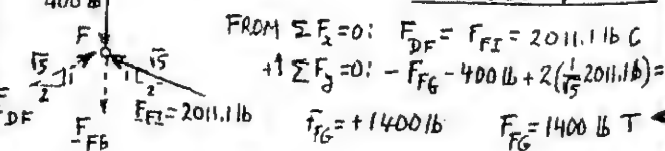 400 lb
F
√5
1
2
√5
1
2
F_DF
F_FG
F_FI = 2011.1 lb
FROM ΣF_x = 0: F_DF = F_FI = 2011.1 lb C
+↑ ΣF_y = 0: - F_FG - 400 lb + 2(1/√5 2011.1 lb) =
F_FG = + 1400 lb F_FG = 1400 lb T ◄